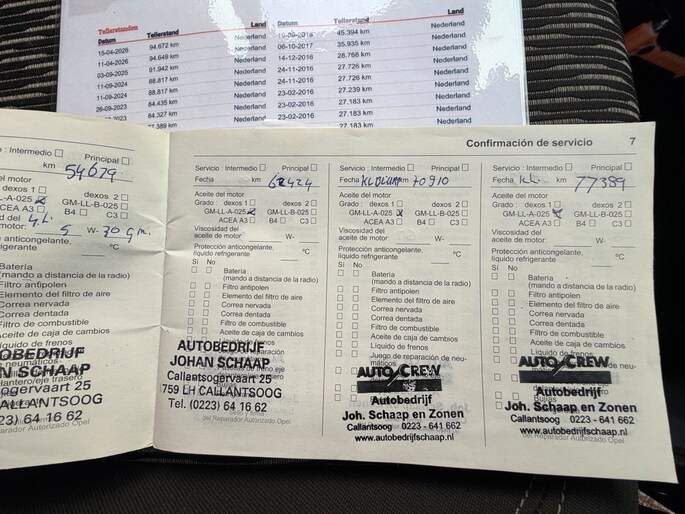 Tellerstanden
Datum Tellerstand Land Datum Tellerstand Land
15-04-2026 94.672 km Nederland 45.394 km Nederland
11-04-2026 94.649 km Nederland 06-10-2017 35.935 km Nederland
03-09-2025 91.942 km Nederland 14-12-2016 28.766 km Nederland
11-09-2024 88.817 km Nederland 24-11-2016 27.726 km Nederland
11-09-2024 88.817 km Nederland 24-11-2016 27.226 km Nederland
26-09-2023 84.435 km Nederland 23-02-2016 27.239 km Nederland
84.327 km Nederland 23-02-2016 27.183 km Nederland
km Nederland 23-02-2016 27.183 km Nederland
Confirmación de servicio 7
Servicio : Intermedio Principal
km 54679
del motor
dexos 1 dexos 2
GM-LL-A-025 GM-LL-B-025
ACEA A3 B4 C3
motor: 5 W- 30
anticongelante,
°C
No
Batería
(mando a distancia de la radio)
Filtro antipolen
Elemento del filtro de aire
Correa nervada
Correa dentada
Filtro de combustible
Aceite de caja de cambios
Líquido de frenos
SCHAAP
25
CALLANTSOOG
(0223) 64 16 62
Reparador Autorizado Opel
Servicio : Intermedio Principal
Fecha km 62424
Aceite del motor
Grado : dexos 1 dexos 2
GM-LL-A-025 GM-LL-B-025
ACEA A3 B4 C3
Viscosidad del
aceite de motor: W-
Protección anticongelante,
líquido refrigerante °C
Sí No
Batería
(mando a distancia de la radio)
Filtro antipolen
Elemento del filtro de aire
Correa nervada
Correa dentada
Filtro de combustible
Aceite de caja de cambios
AUTOBEDRIJF
JOHAN SCHAAP
Callantsogervaart 25
1759 LH CALLANTSOOG
Tel. (0223) 64 16 62
del Reparador Autorizado Opel
Servicio : Intermedio Principal
Fecha km 70910
Aceite del motor
Grado : dexos 1 dexos 2
GM-LL-A-025 GM-LL-B-025
ACEA A3 B4 C3
Viscosidad del
aceite de motor: W-
Protección anticongelante,
líquido refrigerante °C
Sí No
Batería
(mando a distancia de la radio)
Filtro antipolen
Elemento del filtro de aire
Correa nervada
Correa dentada
Filtro de combustible
Aceite de caja de cambios
Líquido de frenos
Juego de reparación de neu-
AUTO CREW
Autobedrijf
Joh. Schaap en Zonen
Callantsoog 0223 - 641 662
www.autobedrijfschaap.nl
del Reparador Autorizado Opel
Servicio : Intermedio Principal
Fecha km 77389
Aceite del motor
Grado : dexos 1 dexos 2
GM-LL-A-025 GM-LL-B-025
ACEA A3 B4 C3
Viscosidad del
aceite de motor: W-
Protección anticongelante,
líquido refrigerante °C
Sí No
Batería
(mando a distancia de la radio)
Filtro antipolen
Elemento del filtro de aire
Correa nervada
Correa dentada
Filtro de combustible
Aceite de caja de cambios
Líquido de frenos
Juego de reparación de neu-
AUTO CREW
Autobedrijf
Bujías
Joh. Schaap en Zonen
Callantsoog 0223 - 641 662
www.autobedrijfschaap.nl
del Reparador Autorizado Opel